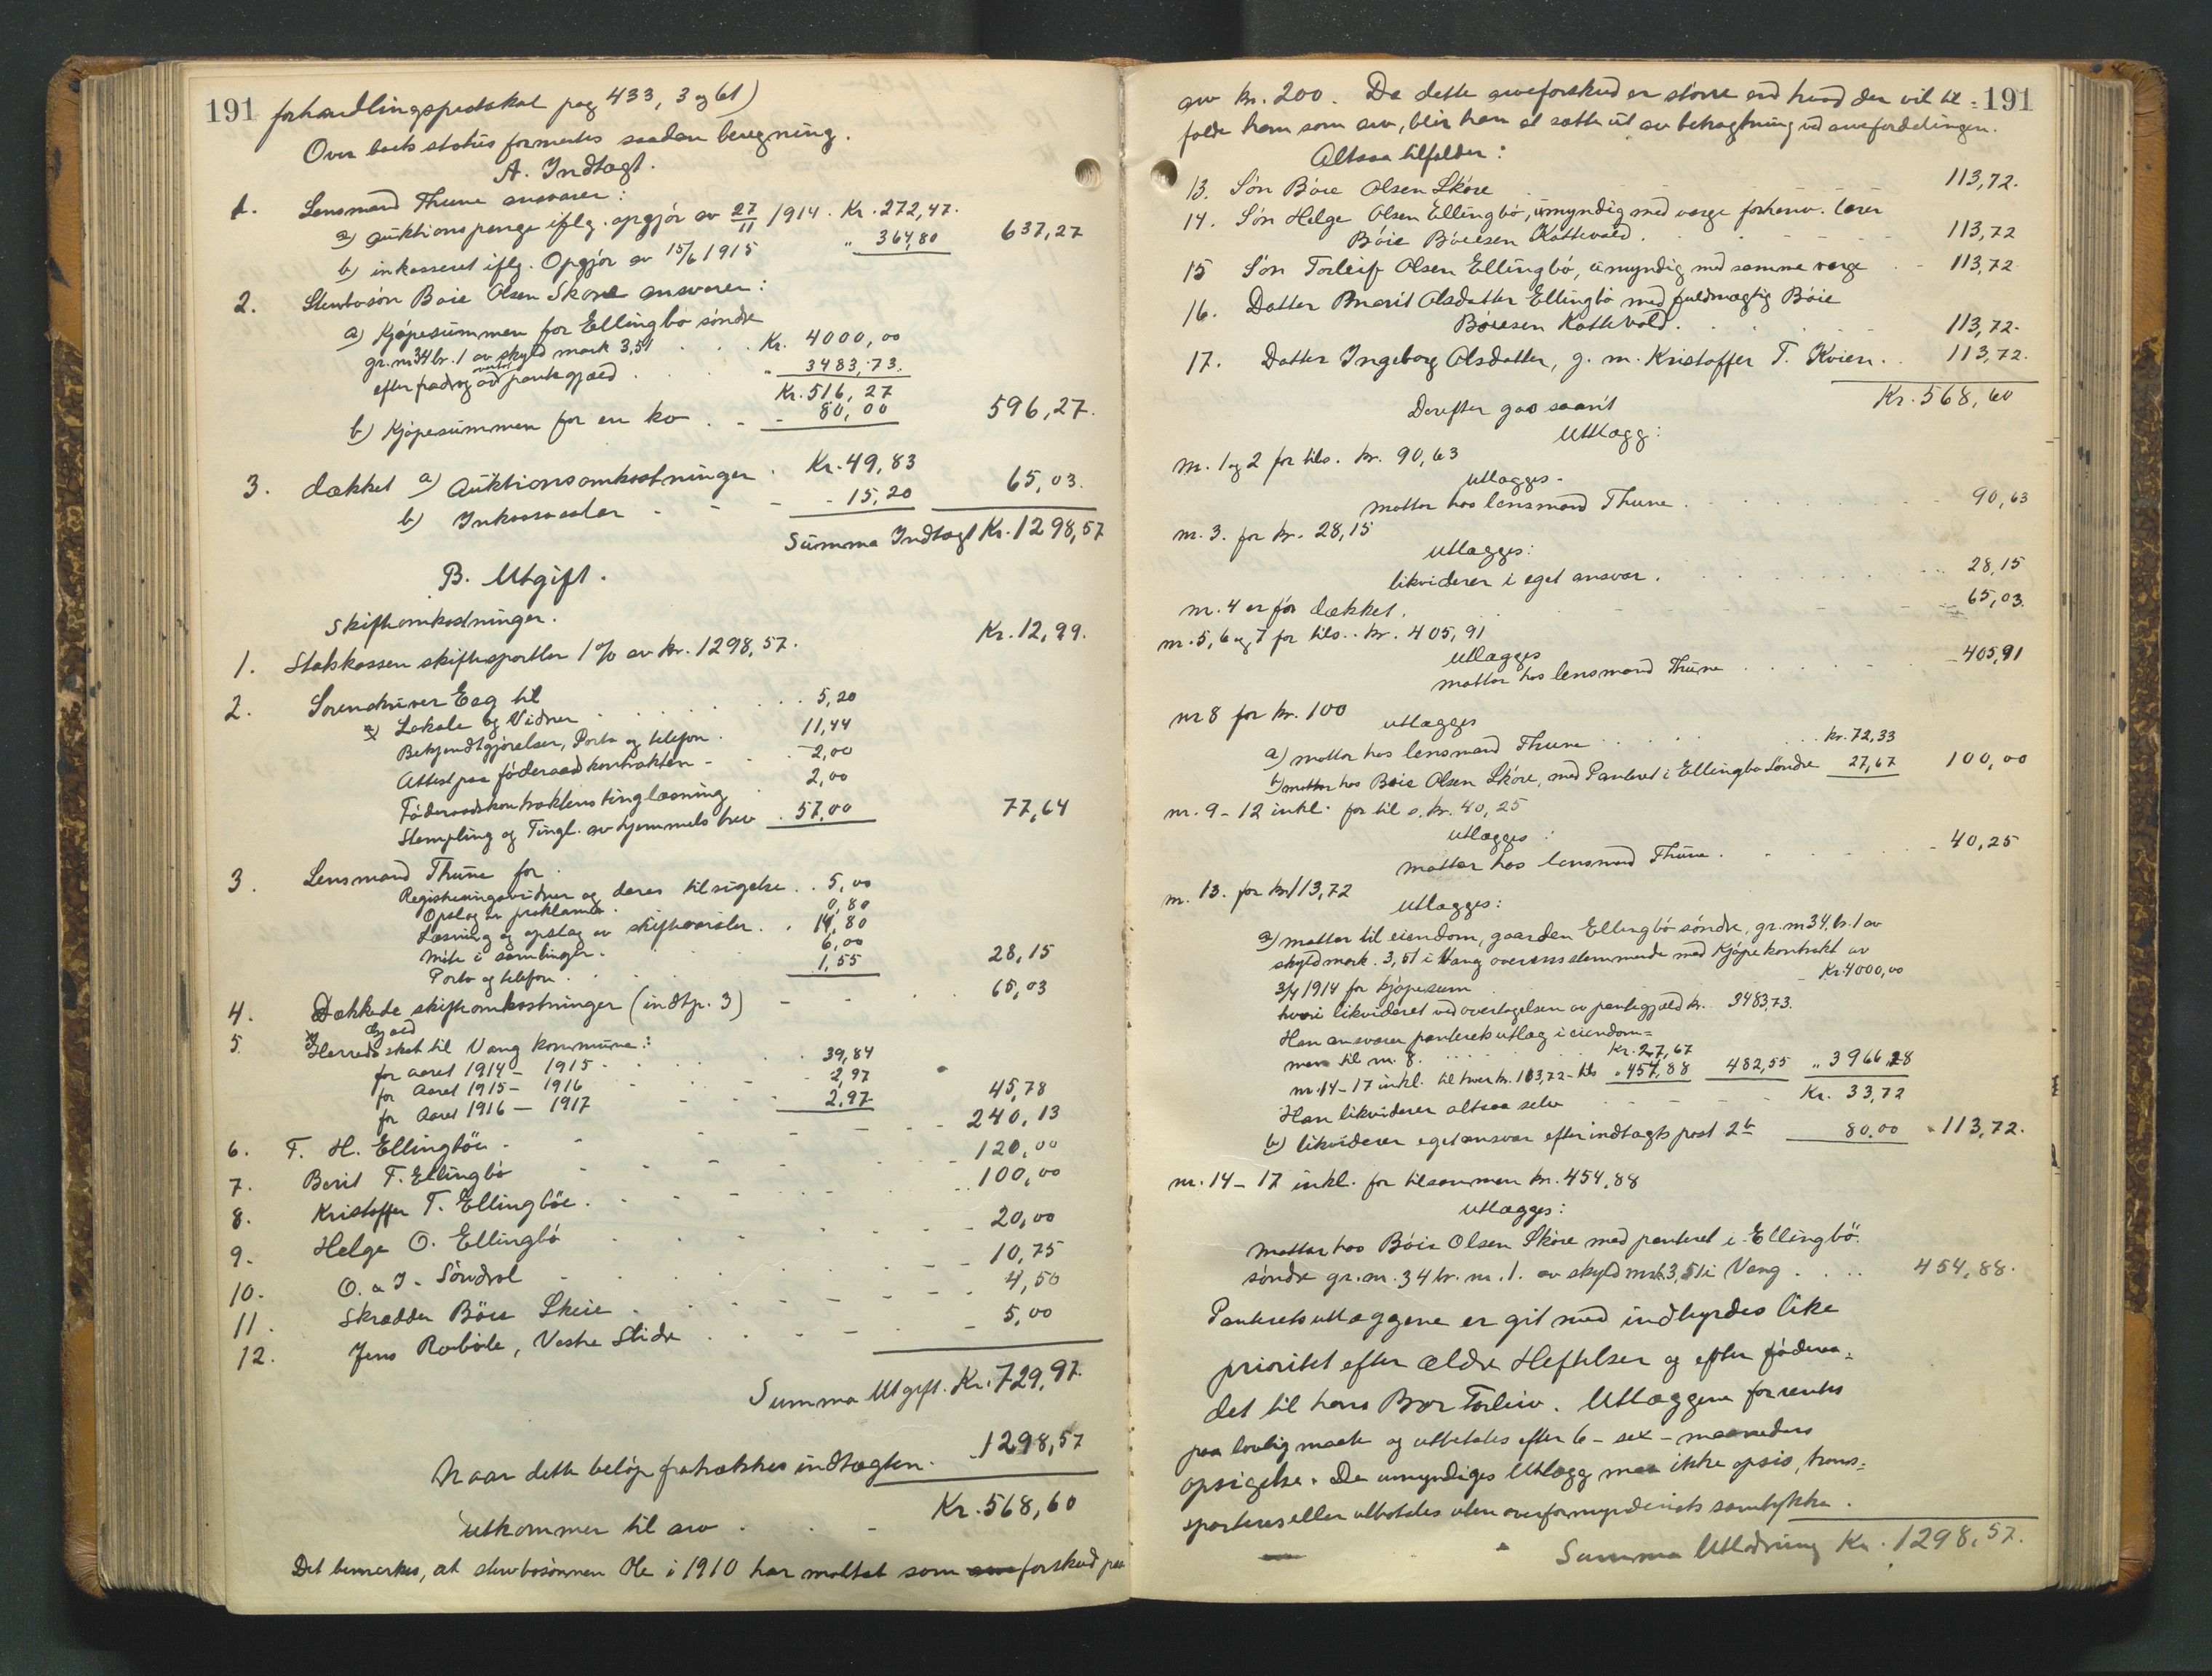 191 forhandlingsprotokol pag 433, 3 og 61)
Over boets status formertes saadan beregning.
A. Indtægt.
1. Lensmand Thune ansvarer:
a) Auktionspenge iflg. opgjør av 27/11 1914. Kr. 272,47.
b) inkasseret iflg. Opgjør av 15/6 1915 " 364,80 637,27
2. Stervbosøn Boie Olsen Skøre ansvarer:
a) Kjøpesummen for Ellingbø søndre
gr. nr 34 br. 1 av skyld mark 3,51 . . . Kr. 4000,00
efter fradrag av overtat pantegjæld . . . " 3483,73.
Kr. 516,27
b) Kjøpesummen for en ko . - - 80,00 596,27.
3. dækket a) Auktionsomkostninger . Kr. 49,83
b) Inkassosalær - - - - 15,20 65,03.
Summa Indtægt Kr. 1298,57
B. Utgift.
Skifteomkostninger.
1. Statskassen skiftesportler 1% av kr. 1298,57. Kr. 12,99.
2. Sorenskriver Eeg til
a) Lokale og Vidner . . . . . . 5,20
Bekjendtgjørelser, Porto og telefon . 11,44
Attest paa føderaadkontrakten - . - 2,00
Føderaadskontraktens tinglæsning . 2,00
Stempling og Tingl. av hjemmels brev . 57,00 77,64
3. Lensmand Thune for
Registreringsvidner og deres tilsigelse . . 5,00
Opslag av proklama . 0,80
Læsning og opslag av skiftevarsler . . 14,80
Møte i samlinger. 6,00
Porto og telefon . . . . 1,55 28,15
4. Dækkede skifteomkostninger (indtp. 3) - - . . 65,03
Gjæld
5. Herredsskat til Vang kommune:
for aaret 1914 - 1915 - . . . 39,84
for Aaret 1915 - 1916 - - - 2,97
for Aaret 1916 - 1917 - - - 2,97 45,78
6. T. H. Ellingbøe . - - - - - 240,13
7. Berit T. Ellingbø - - - - - - 120,00
8. Kristoffer T. Ellingbøe . - - - - - 100,00
9. Helge O. Ellingbø - - - - 20,00
10. O. & J. Søndrol - - - - - 10,75
11. Skrædder Böie Skeie . - - - - - 4,50
12. Jens Robøle, Vestre Slidre . . - - - 5,00
Summa Utgift. Kr. 729,97.
Naar dette beløp fratrækkes indtægten . 1298,57
utkommer til arv . . - Kr. 568,60
Det bemerkes, at stervbosønnen Ole i 1910 har mottat som arveforskud paa
arv kr. 200. Da dette arveforskud er større end hvad der vil til- 191
falde ham som arv, blir han at sætte ut av betragtning ved arvefordelingen.
Altsaa tilfalder:
13. Søn Bøie Olsen Skøre 113,72.
14. Søn Helge Olsen Ellingbø, umyndig med verge forhenv. lærer
Bøie Bøiesen Kattevold . - - - - 113,72
15 Søn Torleif Olsen Ellingbø, umyndig med samme verge - - 113,72
16. Datter Marit Olsdatter Ellingbø med fuldmægtig Bøie
Bøiesen Kattevold . . . . - - 113,72.
17. Datter Ingeborg Olsdatter, g. m. Kristoffer T. Kvien . . 113,72.
Kr. 568,60
Derefter gaves saant
Utlægg:
nr. 1 og 2 for tils. kr. 90,63
utlægges.
mottar hos lensmand Thune . . . . . 90,63
nr. 3. for kr. 28,15
utlægges:
likviderer i eget ansvar . . . . . . 28,15
nr. 4 er før dækket . . . - - - 65,03.
nr. 5, 6 og 7 for tils. kr. 405,91
utlægges
mottar hos lensmand Thune . . . . . - 405,91
nr 8 for kr. 100
utlægges
a) mottar hos lensmand Thune . . . . kr. 72,33
b) mottar hos Boie Olsen Skøre, med Panteret i Ellingbø Søndre 27,67 100,00
nr. 9 - 12 inkl. for tils. kr. 40,25
utlægges:
mottar hos lensmand Thune . - . - . - 40,25
nr. 13. for kr 113,72
utlægges:
a) mottar til eiendom, gaarden Ellingbø søndre, gr. nr 34, br. 1 av
skyldmark. 3,51 i Vang overensstemmende med Kjøpekontrakt av
3/4 1914 for kjøpesum - Kr. 4000,00
hvori likvideret ved overtagelsen av pantegjæld kr. 3483,73.
Han ansvarer panterets utlæg i eiendom=
men til nr. 8. . . . . . Kr. 27,67
nr. 14 - 17 inkl. til hver kr. 113,72 - tils " 454,88 482,55 " 3966,28
Han likviderer altsaa selv - - - - Kr. 33,72
b) likviderer eget ansvar efter indtægts post 2b 80,00 " 113,72.
nr. 14 - 17 inkl. for tilsammen kr. 454,88
utlægges:
Mottar hos Bøie Olsen Skøre med panteret i Ellingbø
søndre gr. nr. 34 br. nr. 1. av skyld mrk 3,51 i Vang . . . . 454,88.
Panteretsutlæggene er git med indbyrdes like
prioritet efter ældre Heftelser og efter føderaa=
det til hans Bror Torleiv. Utlæggene forrentes
paa lovlig maate og utbetales efter 6 - sex - maaneders
opsigelse. De umyndiges Utlægg maa ikke opsis, trans=
porteres eller utbetales uten overformynderiets samtykke.
Summa Utlodning Kr. 1298,57.